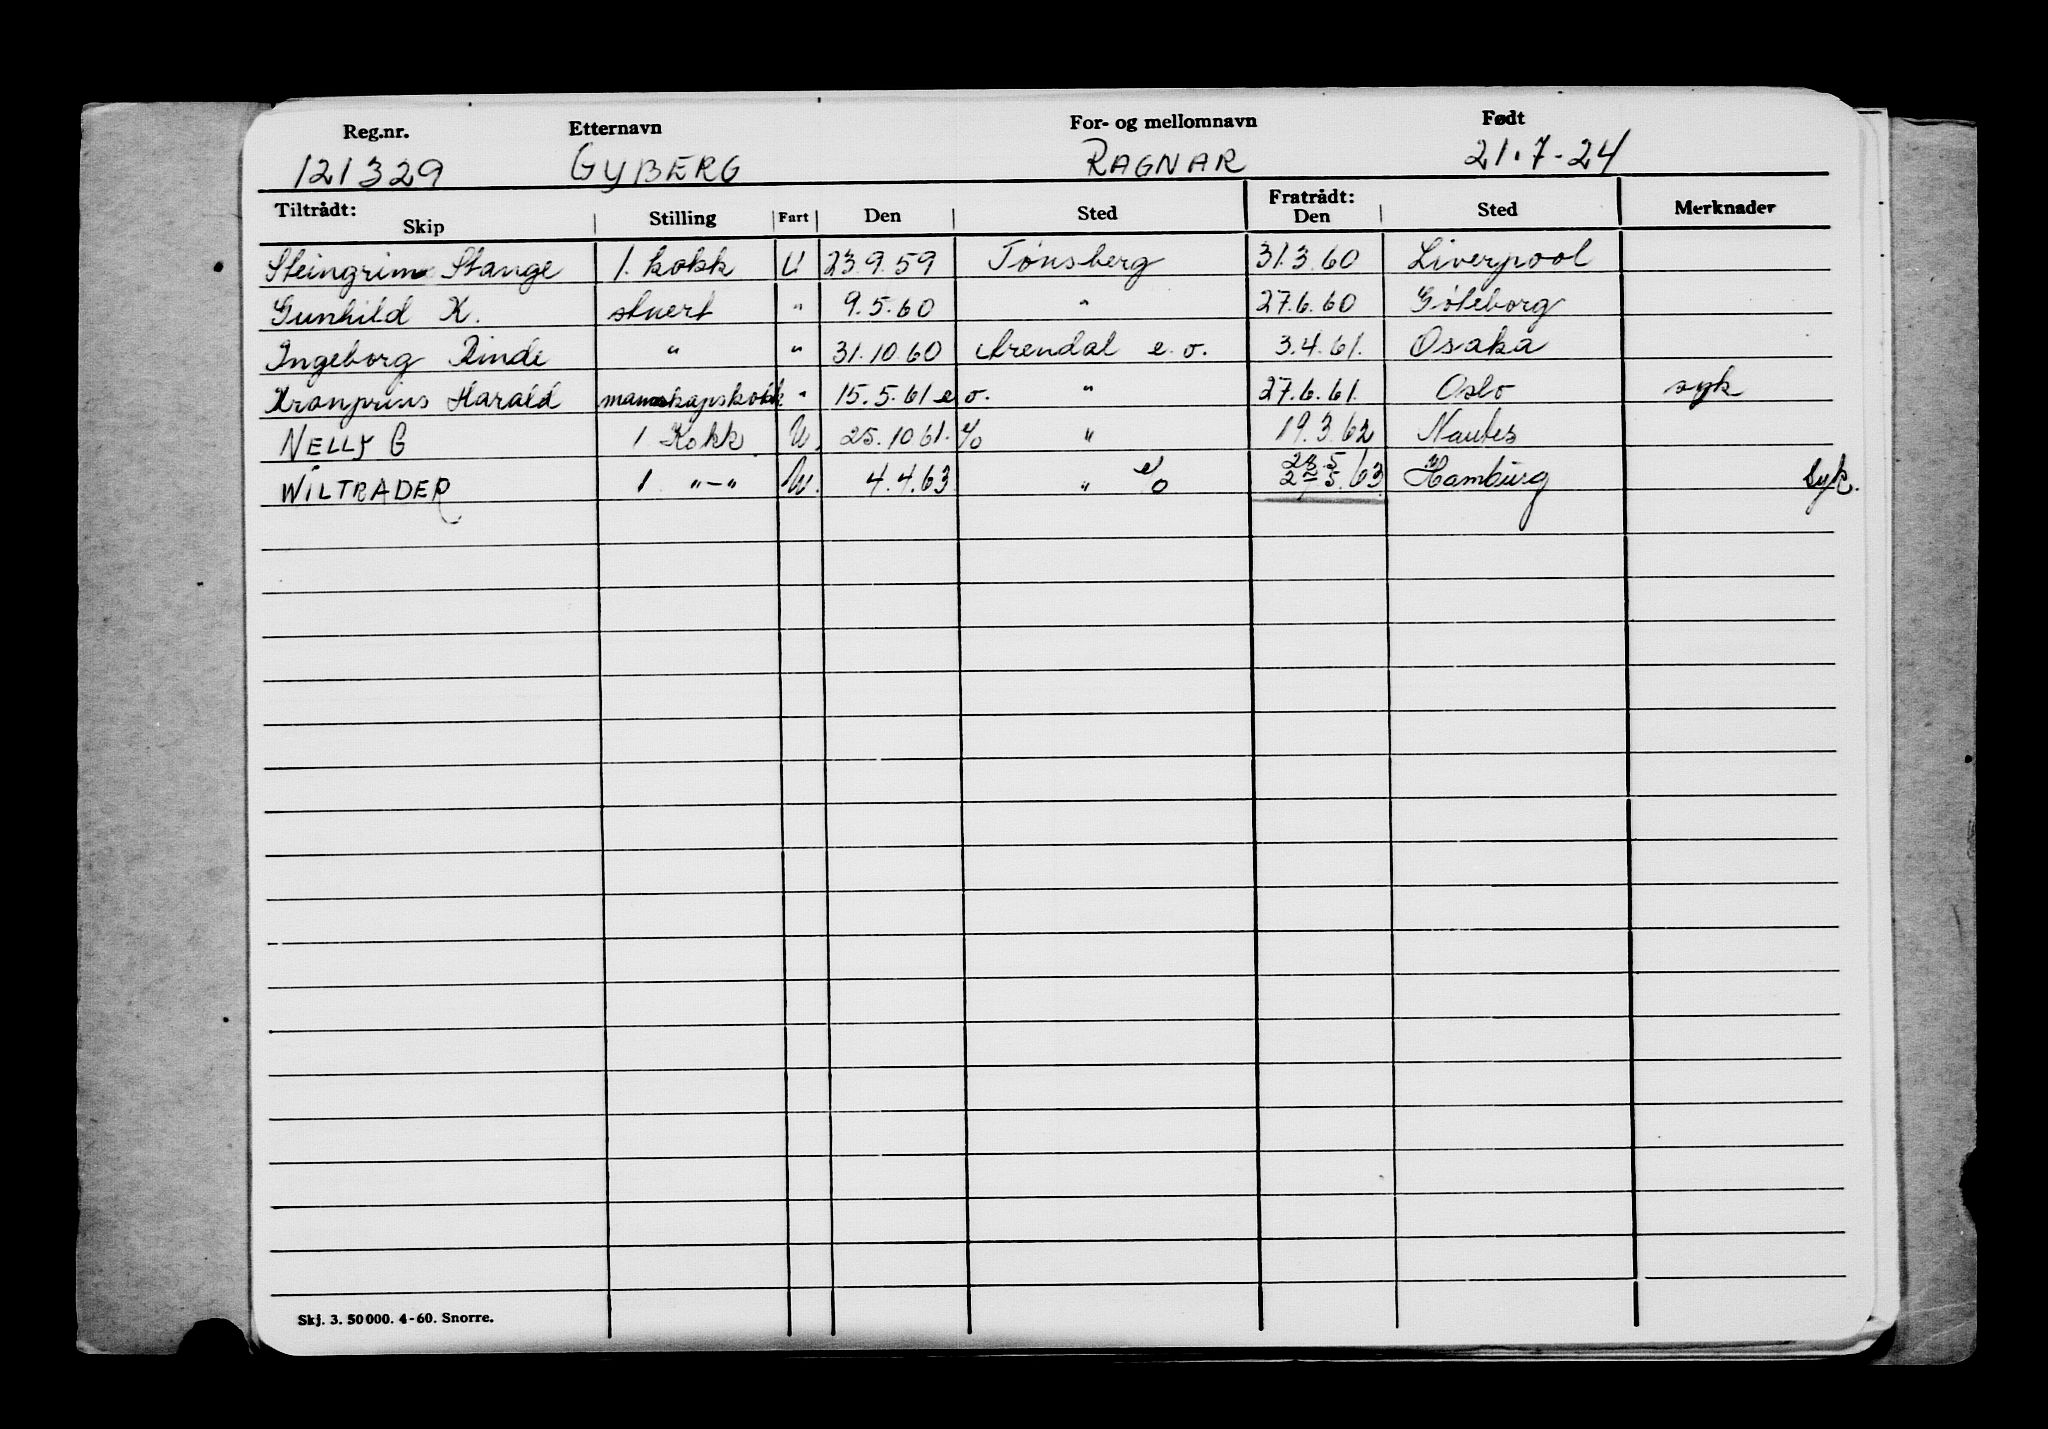 Reg.nr. Etternavn For- og mellomnavn Født
121329 GYBERG RAGNAR 21.7-24
Tiltrådt: Skip Stilling Fart Den Sted Fratrådt: Den Sted Merknader
Steingrim Stange 1. kokk U 23.9.59 Tønsberg 31.3.60 Liverpool
Gunhild K. stuert " 9.5.60 " 27.6.60 Göteborg
Ingeborg Rinde " " 31.10.60 Arendal e.o. 3.4.61. Osaka
Kronprins Harald mannskapskokk " 15.5.61 e o. " 27.6.61. Oslo syk
NELLY G 1 Kokk U. 25.10 61. %o " 19.3.62 Nantes
WILTRADER 1 "-" U. 4.4.63 " e/o 63 Hamburg Syk.
Skj. 3. 50000. 4-60. Snorre.